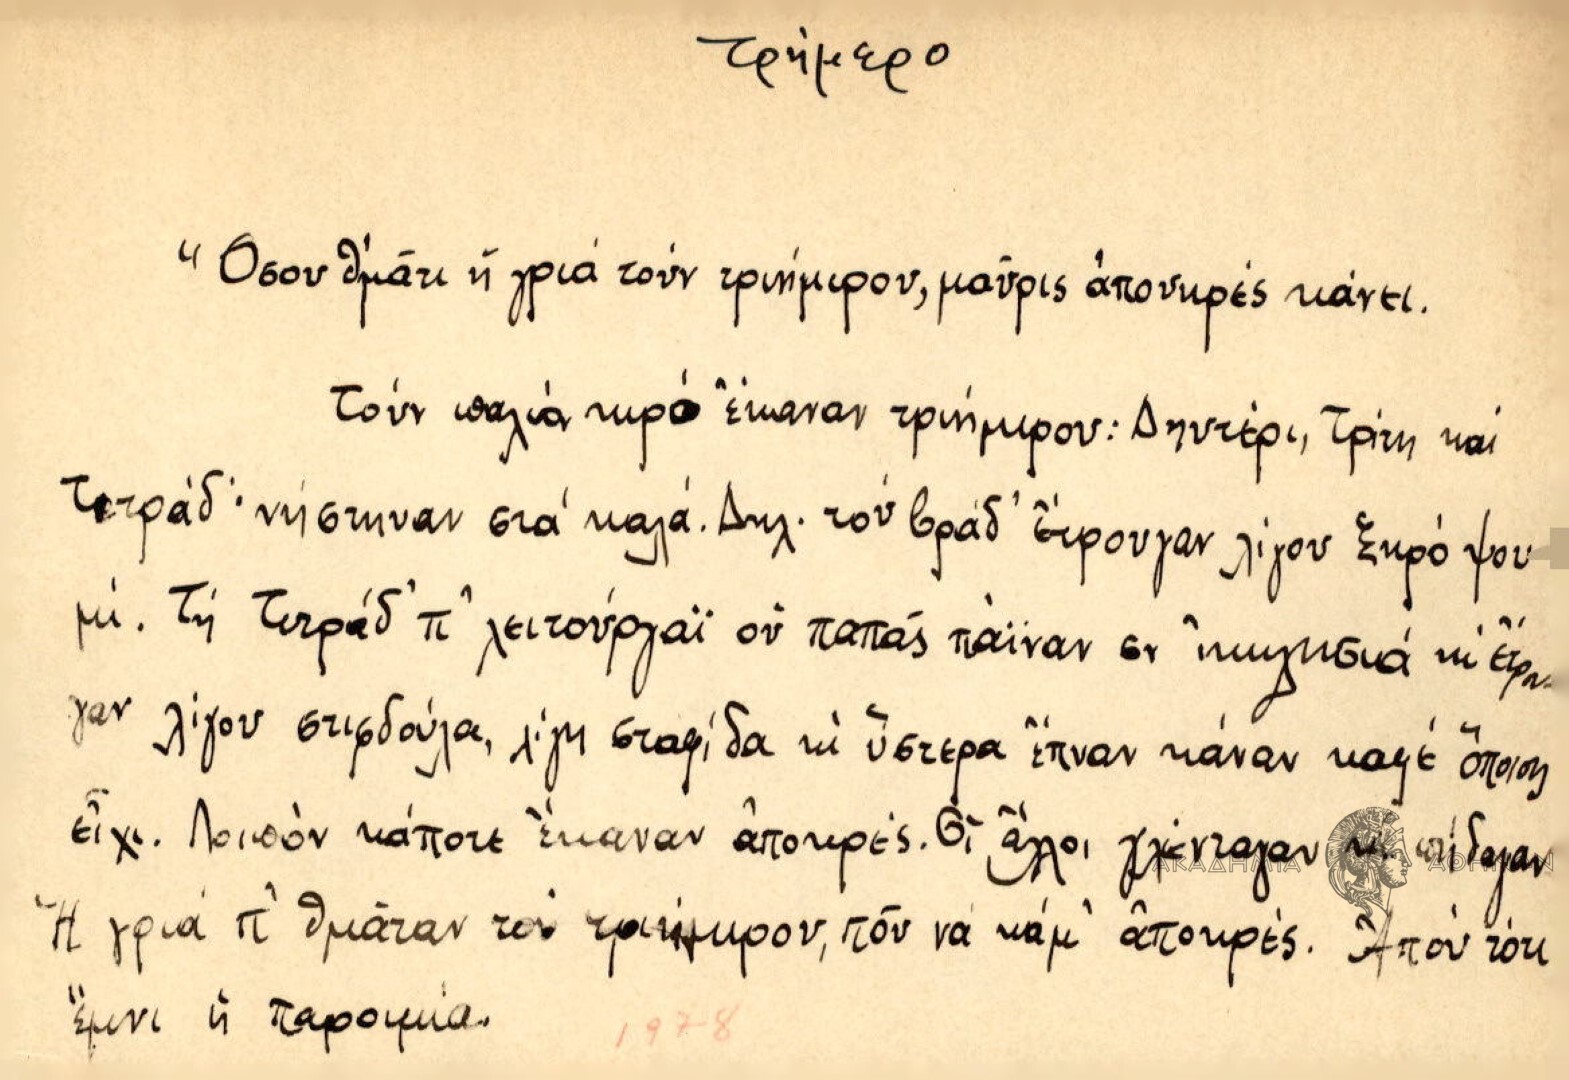 τρήμερο
"Όσου θ'μᾶτι ἡ γριά τούν τριήμιρου, μαῦρις ἀπουκρές κάνει.
Τούν παλιό κιρό ἔκαναν τριήμιρου: Δηυτέρι, Τρίτη καί
Τιτράδ' νήστηυαν στά καλά. Δηλ. τού βράδ' ἔτρουγαν λίγου ξηρό ψου
μί. Τή Τιτράδ' π' λειτούργαϊ οὑ παπᾶς πάϊναν σν ἰκκλησιά κι ἔτρω-
γαν λίγου στιφδούλα, λίγη σταφίδα κι ὕστερα ἔπναν κάναν καφέ ὅποιος
εἶχι. Λοιπόν κάποτε ἔκαναν ἀποκρές. Οἱ ἄλλοι γλένταγαν κι πήδαγαν
Ἡ γριά π' θμᾶταν του τριήμιρου, πού νά κάμ' ἀποκρές. Ἀπού τότι
ἔμνι ἡ παροιμία.
1978
ΑΚΑΔΗΜΙΑ ΑΘΗΝΩΝ